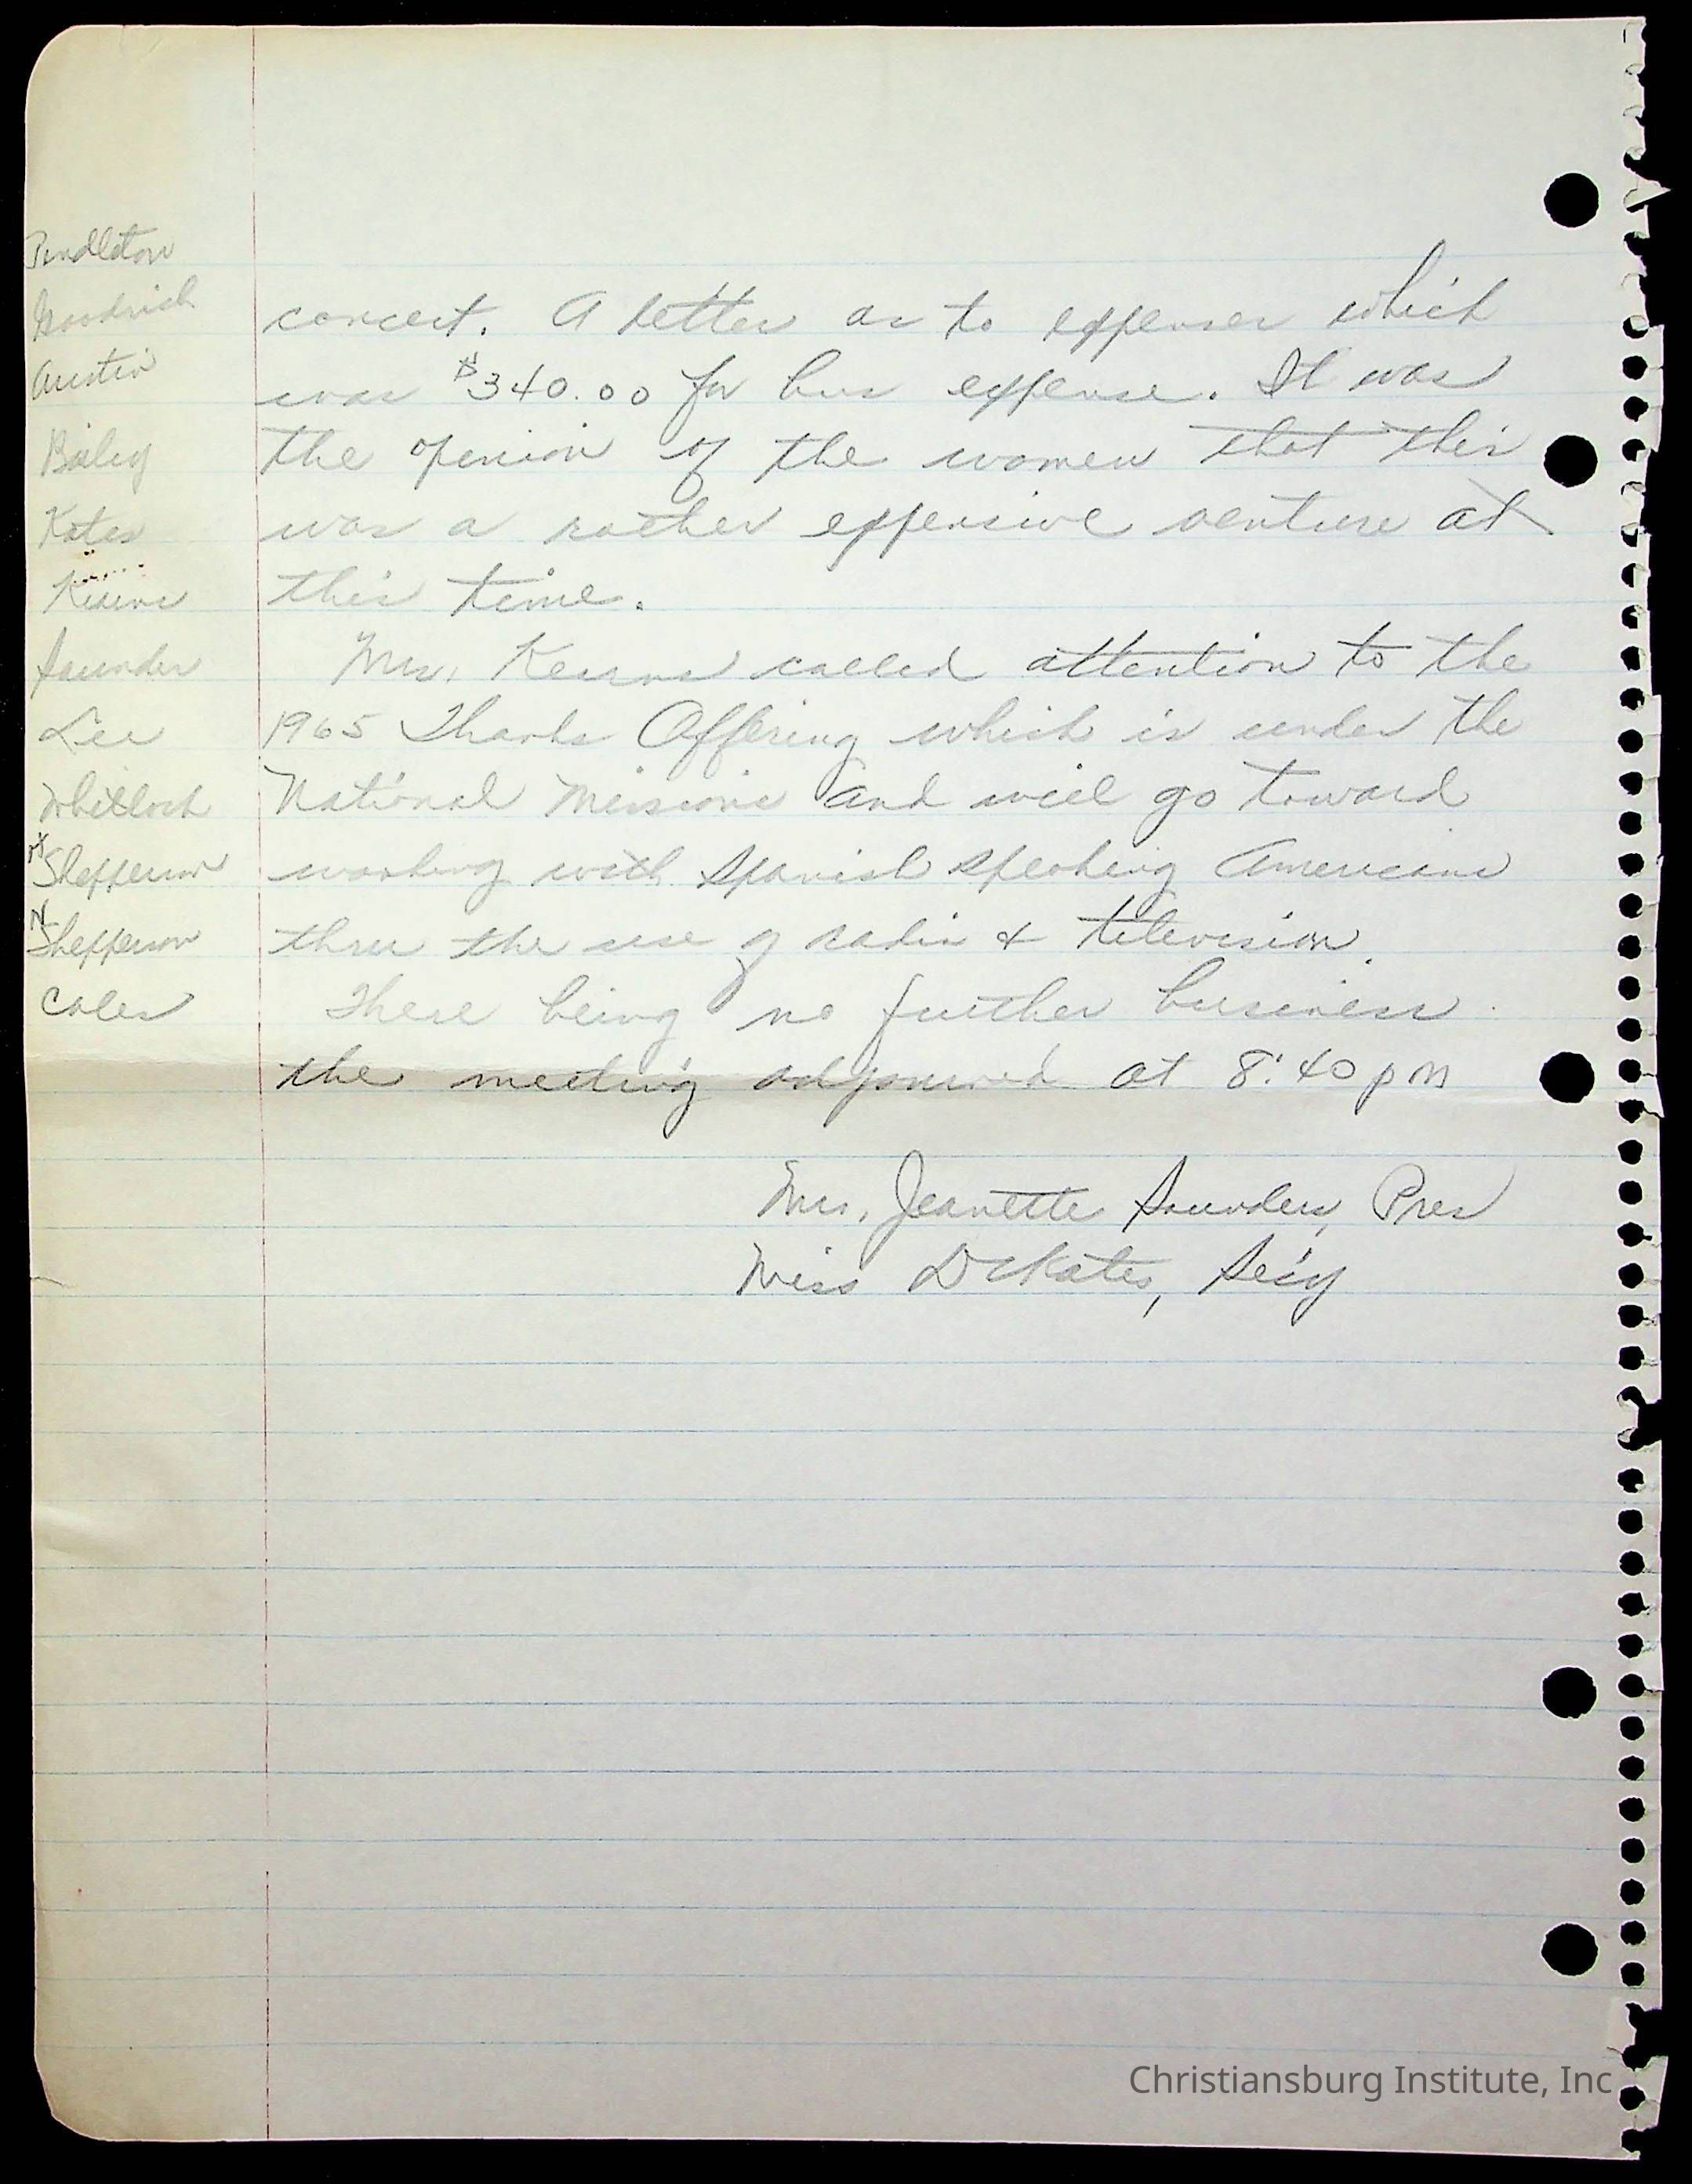 Pendleton
Goodrich
Austin
Bailey
Kates
Kearns
Saunders
Lee
Whitlock
Shepperson
N Shepperson
Coles
concert. A letter as to expenses which
was $340.00 for bus expense. It was
the openion of the women that this
was a rather expensive venture at
this time.
Mrs. Kearns called attention to the
1965 Thanks Offering which is under the
National Missions and will go toward
working with Spanish speaking Americans
thru the use of radio & television.
There being no further business
the meeting adjourned at 8:40 pm
Mrs. Jeanette Saunders, Pres
Miss D Kates, Sec'y
Christiansburg Institute, Inc